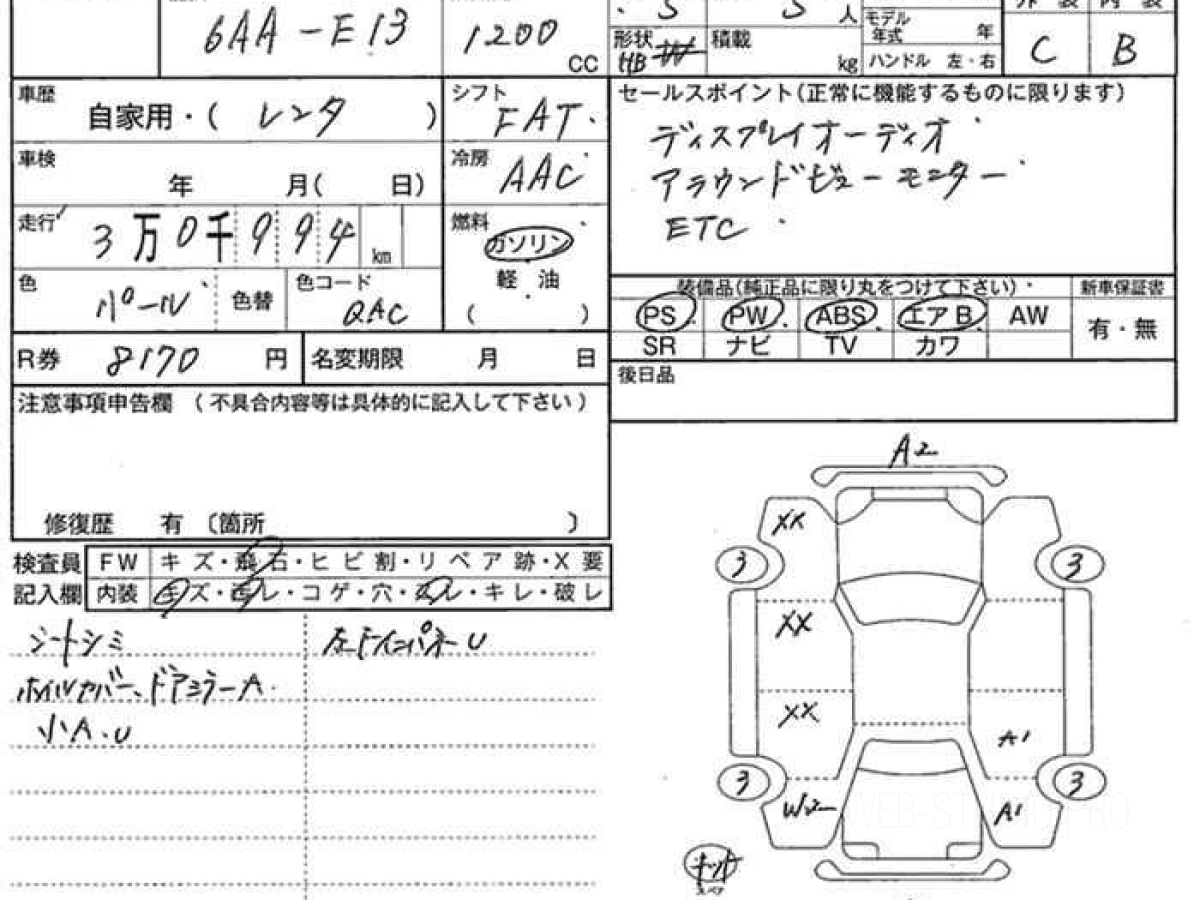 6AA-E13
1200
CC
5
5 人
モデル年式 年
外装 内装
形状 HB W
積載 kg
ハンドル 左・右
C
B
車歴
自家用・( レンタ )
シフト
FAT
セールスポイント(正常に機能するものに限ります)
ディスプレイオーディオ
アラウンドビューモニター
ETC
車検
年 月( 日)
冷房
AAC
走行
3万0千994 km
燃料
ガソリン
軽油
( )
色
パール
色替
色コード
QAC
装備品(純正品に限り丸をつけて下さい)
新車保証書
PS PW ABS エアB AW
有・無
SR ナビ TV カワ
R券 8170 円
名変期限 月 日
後日品
注意事項申告欄 (不具合内容等は具体的に記入して下さい)
修復歴 有 〔箇所 〕
検査員
記入欄
FW キズ・飛石・ヒビ割・リペア跡・X要
内装 キズ・西レ・コゲ・穴・ヌレ・キレ・破レ
シートシミ
ホイルカバー、ドアミラーA
小A.U
A2
XX
3
3
XX
XX
A1
3
3
W2
A1
キット
スペア
WEB-STOCK PRO